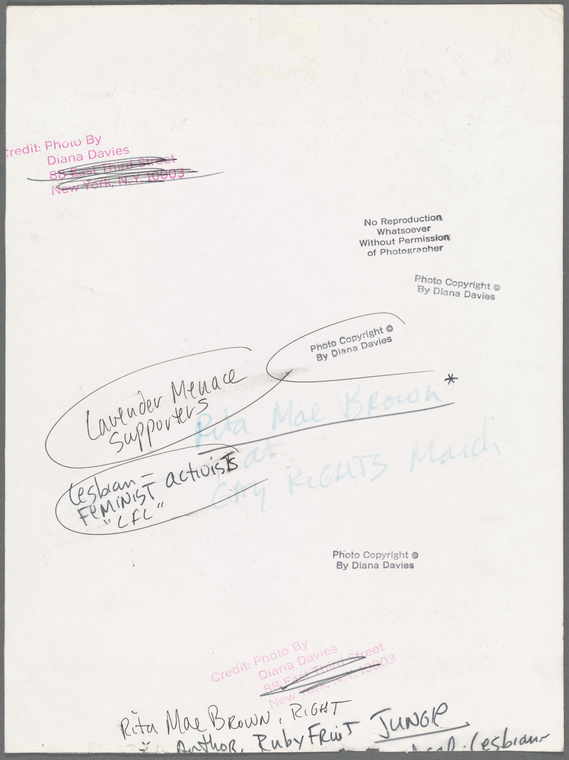 Credit: Photo By
Diana Davies
88 East Third Street
New York, N.Y. 10003
No Reproduction
Whatsoever
Without Permission
of Photographer
Photo Copyright ©
By Diana Davies
Photo Copyright ©
By Diana Davies
Lavender Menace
Supporters
Rita Mae Brown *
at
GAY RIGHTS March
Lesbian -
FEMINIST activists
"LFL"
Photo Copyright ©
By Diana Davies
Credit: Photo By
Diana Davies
88 East Third Street
New York, N.Y. 10003
Rita Mae Brown, RIGHT
* Author, Ruby Fruit JUNGLE
Lesbian